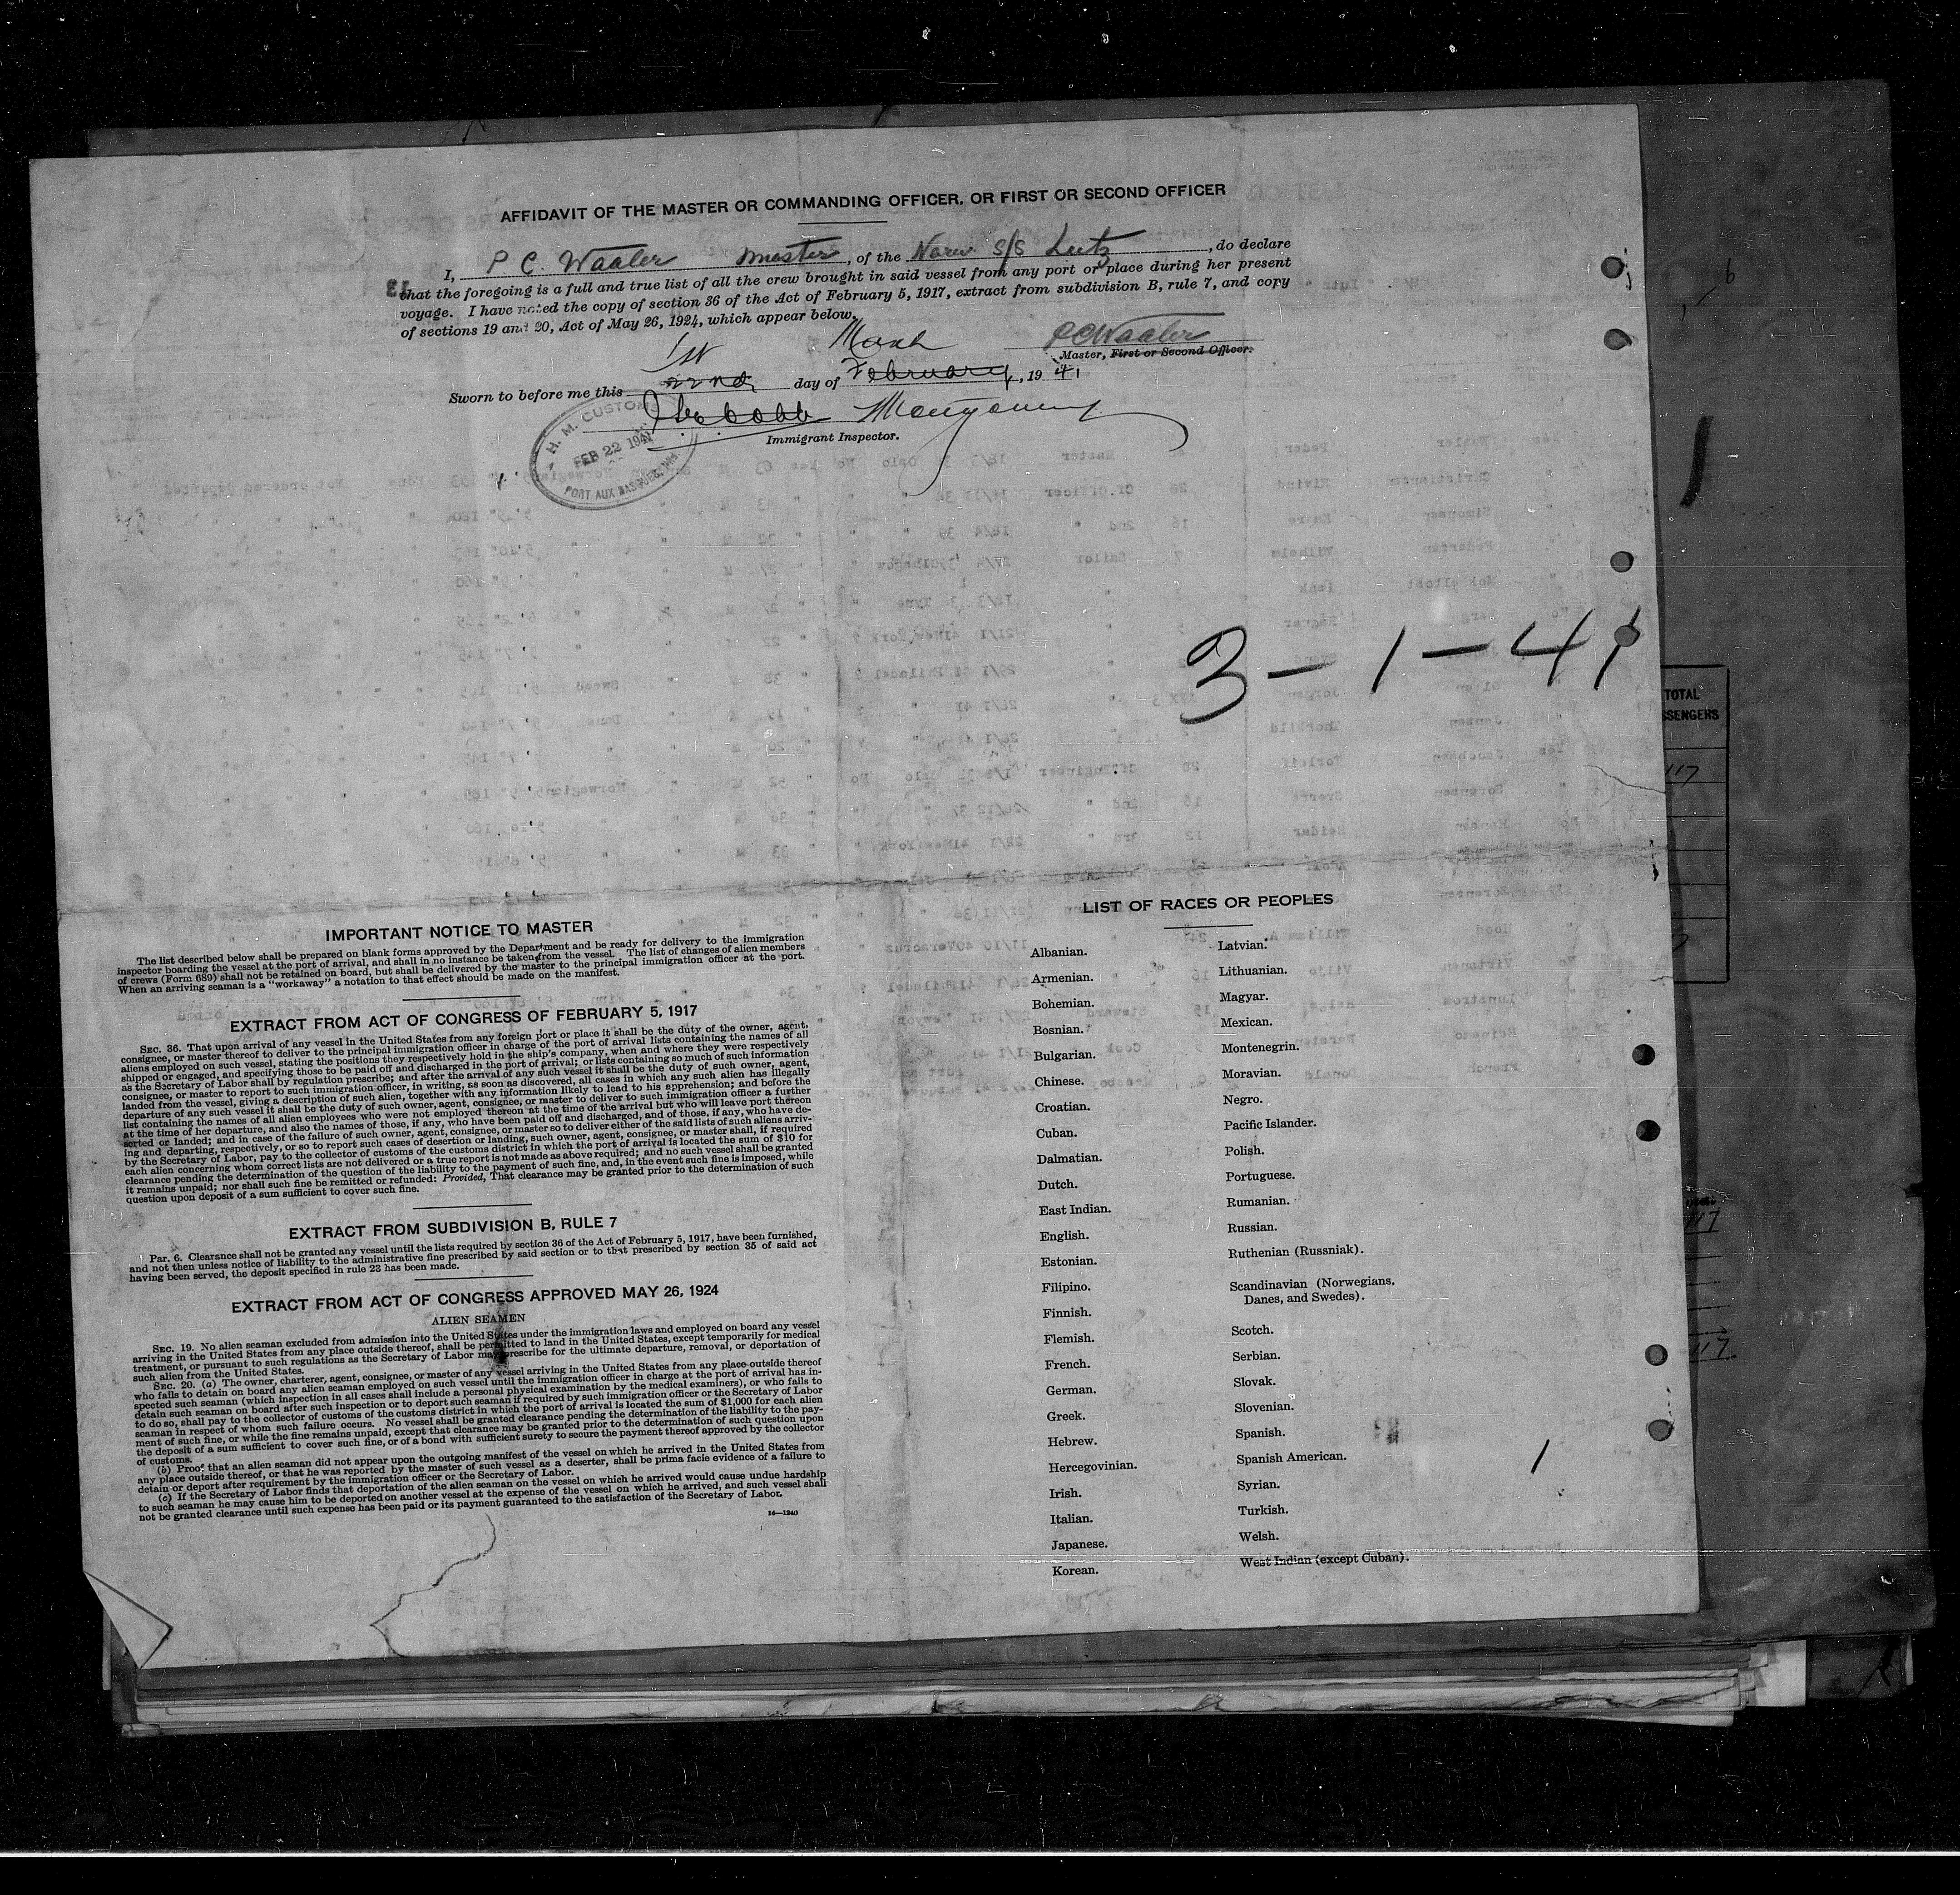 AFFIDAVIT OF THE MASTER OR COMMANDING OFFICER, OR FIRST OR SECOND OFFICER
I, P C. Waaler master, of the Norw s/s Lutz, do declare
that the foregoing is a full and true list of all the crew brought in said vessel from any port or place during her present
voyage. I have noted the copy of section 36 of the Act of February 5, 1917, extract from subdivision B, rule 7, and copy
of sections 19 and 20, Act of May 26, 1924, which appear below.
P C Waaler
Master, First or Second Officer.
1st March
Sworn to before me this 22nd day of February, 1941
Montgomery
Immigrant Inspector.
H. M. CUSTOMS
FEB 22 1941
PORT AUX BASQUES, Nfld
3-1-41
TOTAL
SSENGERS
117
117
117
IMPORTANT NOTICE TO MASTER
The list described below shall be prepared on blank forms approved by the Department and be ready for delivery to the immigration
inspector boarding the vessel at the port of arrival, and shall in no instance be taken from the vessel. The list of changes of alien members
of crews (Form 689) shall not be retained on board, but shall be delivered by the master to the principal immigration officer at the port.
When an arriving seaman is a "workaway" a notation to that effect should be made on the manifest.
EXTRACT FROM ACT OF CONGRESS OF FEBRUARY 5, 1917
SEC. 36. That upon arrival of any vessel in the United States from any foreign port or place it shall be the duty of the owner, agent,
consignee, or master thereof to deliver to the principal immigration officer in charge of the port of arrival lists containing the names of all
aliens employed on such vessel, stating the positions they respectively hold in the ship's company, when and where they were respectively
shipped or engaged, and specifying those to be paid off and discharged in the port of arrival; or lists containing so much of such information
as the Secretary of Labor shall by regulation prescribe; and after the arrival of any such vessel it shall be the duty of such owner, agent,
consignee, or master to report to such immigration officer, in writing, as soon as discovered, all cases in which any such alien has illegally
landed from the vessel, giving a description of such alien, together with any information likely to lead to his apprehension; and before the
departure of any such vessel it shall be the duty of such owner, agent, consignee, or master to deliver to such immigration officer a further
list containing the names of all alien employees who were not employed thereon at the time of the arrival but who will leave port thereon
at the time of her departure, and also the names of those, if any, who have been paid off and discharged, and of those, if any, who have de-
serted or landed; and in case of the failure of such owner, agent, consignee, or master so to deliver either of the said lists of such aliens arriv-
ing and departing, respectively, or so to report such cases of desertion or landing, such owner, agent, consignee, or master shall, if required
by the Secretary of Labor, pay to the collector of customs of the customs district in which the port of arrival is located the sum of $10 for
each alien concerning whom correct lists are not delivered or a true report is not made as above required; and no such vessel shall be granted
clearance pending the determination of the question of the liability to the payment of such fine, and, in the event such fine is imposed, while
it remains unpaid; nor shall such fine be remitted or refunded: Provided, That clearance may be granted prior to the determination of such
question upon deposit of a sum sufficient to cover such fine.
EXTRACT FROM SUBDIVISION B, RULE 7
Par. 6. Clearance shall not be granted any vessel until the lists required by section 36 of the Act of February 5, 1917, have been furnished,
and not then unless notice of liability to the administrative fine prescribed by said section or to that prescribed by section 35 of said act
having been served, the deposit specified in rule 23 has been made.
EXTRACT FROM ACT OF CONGRESS APPROVED MAY 26, 1924
ALIEN SEAMEN
SEC. 19. No alien seaman excluded from admission into the United States under the immigration laws and employed on board any vessel
arriving in the United States from any place outside thereof, shall be permitted to land in the United States, except temporarily for medical
treatment, or pursuant to such regulations as the Secretary of Labor may prescribe for the ultimate departure, removal, or deportation of
such alien from the United States.
SEC. 20. (a) The owner, charterer, agent, consignee, or master of any vessel arriving in the United States from any place outside thereof
who fails to detain on board any alien seaman employed on such vessel until the immigration officer in charge at the port of arrival has in-
spected such seaman (which inspection in all cases shall include a personal physical examination by the medical examiners), or who fails to
detain such seaman on board after such inspection or to deport such seaman if required by such immigration officer or the Secretary of Labor
to do so, shall pay to the collector of customs of the customs district in which the port of arrival is located the sum of $1,000 for each alien
seaman in respect of whom such failure occurs. No vessel shall be granted clearance pending the determination of the liability to the pay-
ment of such fine, or while the fine remains unpaid, except that clearance may be granted prior to the determination of such question upon
the deposit of a sum sufficient to cover such fine, or of a bond with sufficient surety to secure the payment thereof approved by the collector
of customs.
(b) Proof that an alien seaman did not appear upon the outgoing manifest of the vessel on which he arrived in the United States from
any place outside thereof, or that he was reported by the master of such vessel as a deserter, shall be prima facie evidence of a failure to
detain or deport after requirement by the immigration officer or the Secretary of Labor.
(c) If the Secretary of Labor finds that deportation of the alien seaman on the vessel on which he arrived would cause undue hardship
to such seaman he may cause him to be deported on another vessel at the expense of the vessel on which he arrived, and such vessel shall
not be granted clearance until such expense has been paid or its payment guaranteed to the satisfaction of the Secretary of Labor.
16—1240
LIST OF RACES OR PEOPLES
Albanian.
Armenian.
Bohemian.
Bosnian.
Bulgarian.
Chinese.
Croatian.
Cuban.
Dalmatian.
Dutch.
East Indian.
English.
Estonian.
Filipino.
Finnish.
Flemish.
French.
German.
Greek.
Hebrew.
Hercegovinian.
Irish.
Italian.
Japanese.
Korean.
Latvian.
Lithuanian.
Magyar.
Mexican.
Montenegrin.
Moravian.
Negro.
Pacific Islander.
Polish.
Portuguese.
Rumanian.
Russian.
Ruthenian (Russniak).
Scandinavian (Norwegians,
Danes, and Swedes).
Scotch.
Serbian.
Slovak.
Slovenian.
Spanish.
Spanish American.
Syrian.
Turkish.
Welsh.
West Indian (except Cuban).